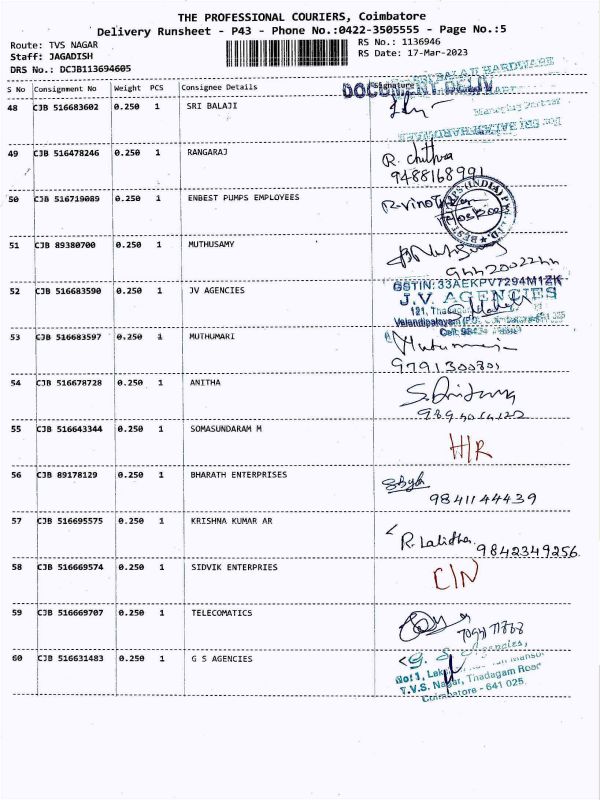 THE PROFESSIONAL COURIERS, Coimbatore
Delivery Runsheet - P43 - Phone No.:0422-3505555 - Page No.:5
Route: TVS NAGAR
RS No.: 1136946
Staff: JAGADISH
RS Date: 17-Mar-2023
DRS No.: DCJB113694605
S No Consignment No Weight PCS Consignee Details Signature
DOCUMENT DELIV
48 CJB 516683602 0.250 1 SRI BALAJI
Managing Partner
49 CJB 516478246 0.250 1 RANGARAJ R. chithra
9488168991
50 CJB 516719089 0.250 1 ENBEST PUMPS EMPLOYEES
51 CJB 89380700 0.250 1 MUTHUSAMY
GSTIN: 33AEKPV7294M1ZK
52 CJB 516683590 0.250 1 JV AGENCIES J.V. AGENCIES
53 CJB 516683597 0.250 1 MUTHUMARI
9791300801
54 CJB 516678728 0.250 1 ANITHA
55 CJB 516643344 0.250 1 SOMASUNDARAM M H/R
56 CJB 89178129 0.250 1 BHARATH ENTERPRISES
9841144439
57 CJB 516695575 0.250 1 KRISHNA KUMAR AR R. Lalitha
9842349256
58 CJB 516669574 0.250 1 SIDVIK ENTERPRIES C/N
59 CJB 516669707 0.250 1 TELECOMATICS
60 CJB 516631483 0.250 1 G S AGENCIES G. S. Agencies,
No: 1,
T.V.S. Nagar, Thadagam Road
Coimbatore - 641 025.